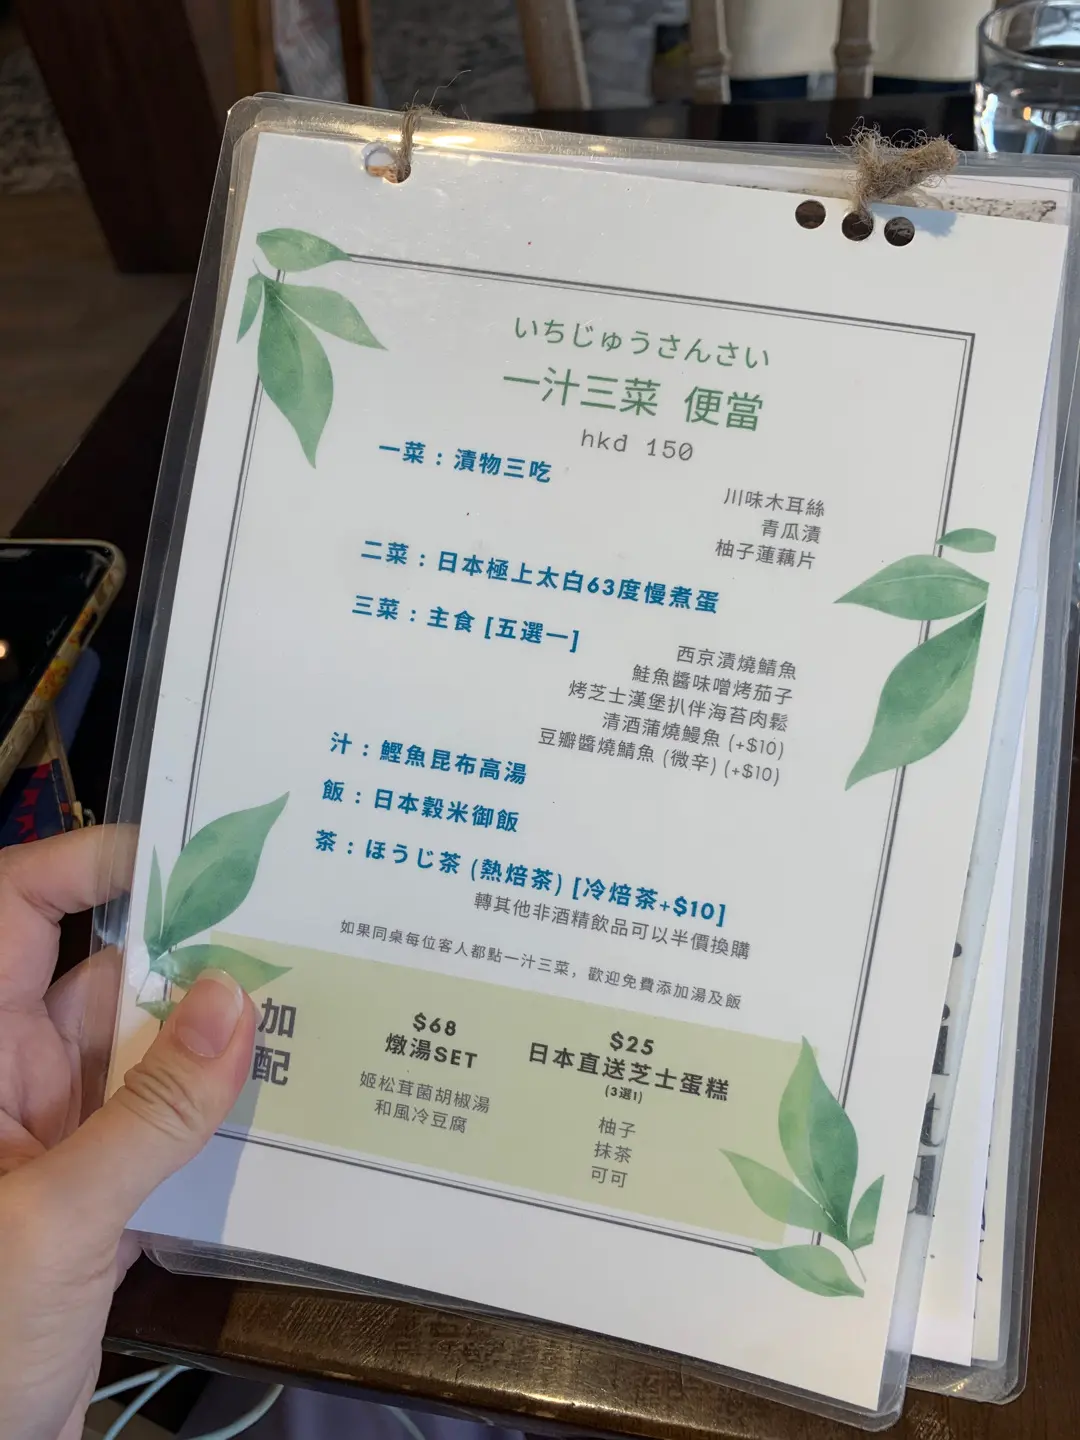 いちじゅうさんさい
一汁三菜 便當
hkd 150
一菜：漬物三吃
川味木耳絲
青瓜漬
柚子蓮藕片
二菜：日本極上太白63度慢煮蛋
三菜：主食 [五選一]
西京漬燒鯖魚
鮭魚醬味噌烤茄子
烤芝士漢堡扒伴海苔肉鬆
清酒蒲燒鰻魚 (+$10)
豆瓣醬燒鯖魚 (微辛) (+$10)
汁：鰹魚昆布高湯
飯：日本穀米御飯
茶：ほうじ茶 (熱焙茶) [冷焙茶+$10]
轉其他非酒精飲品可以半價換購
如果同桌每位客人都點一汁三菜，歡迎免費添加湯及飯
加
配
$68
燉湯SET
姬松茸菌胡椒湯
和風冷豆腐
$25
日本直送芝士蛋糕
(3選1)
柚子
抹茶
可可